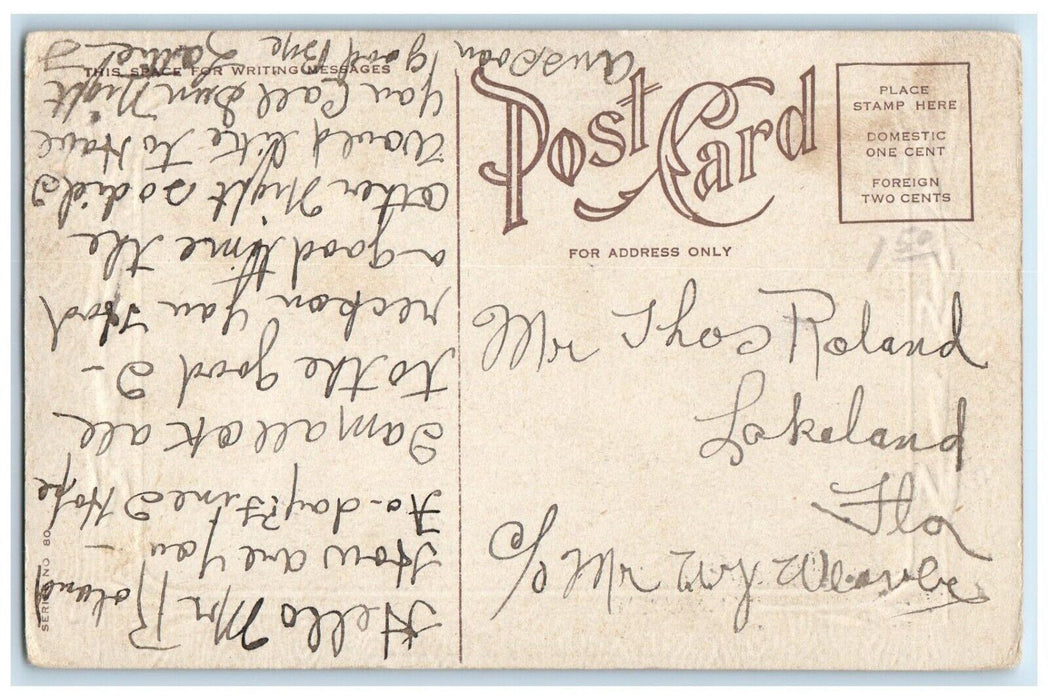 THIS SPACE FOR WRITING MESSAGES
Hello Mr Roland
How are you -
to-day? Fine I Hope
I am all ok all
to the good I -
reckon you Had
a good time the
other Night so did I
Would like to Have
you Call Sun Night
good Bye
Ans Soon
SERIES NO 80
POST CARD
FOR ADDRESS ONLY
PLACE
STAMP HERE
DOMESTIC
ONE CENT
FOREIGN
TWO CENTS
Mr Thos Roland
Lakeland
Fla
c/o Mr W. J. Weaver